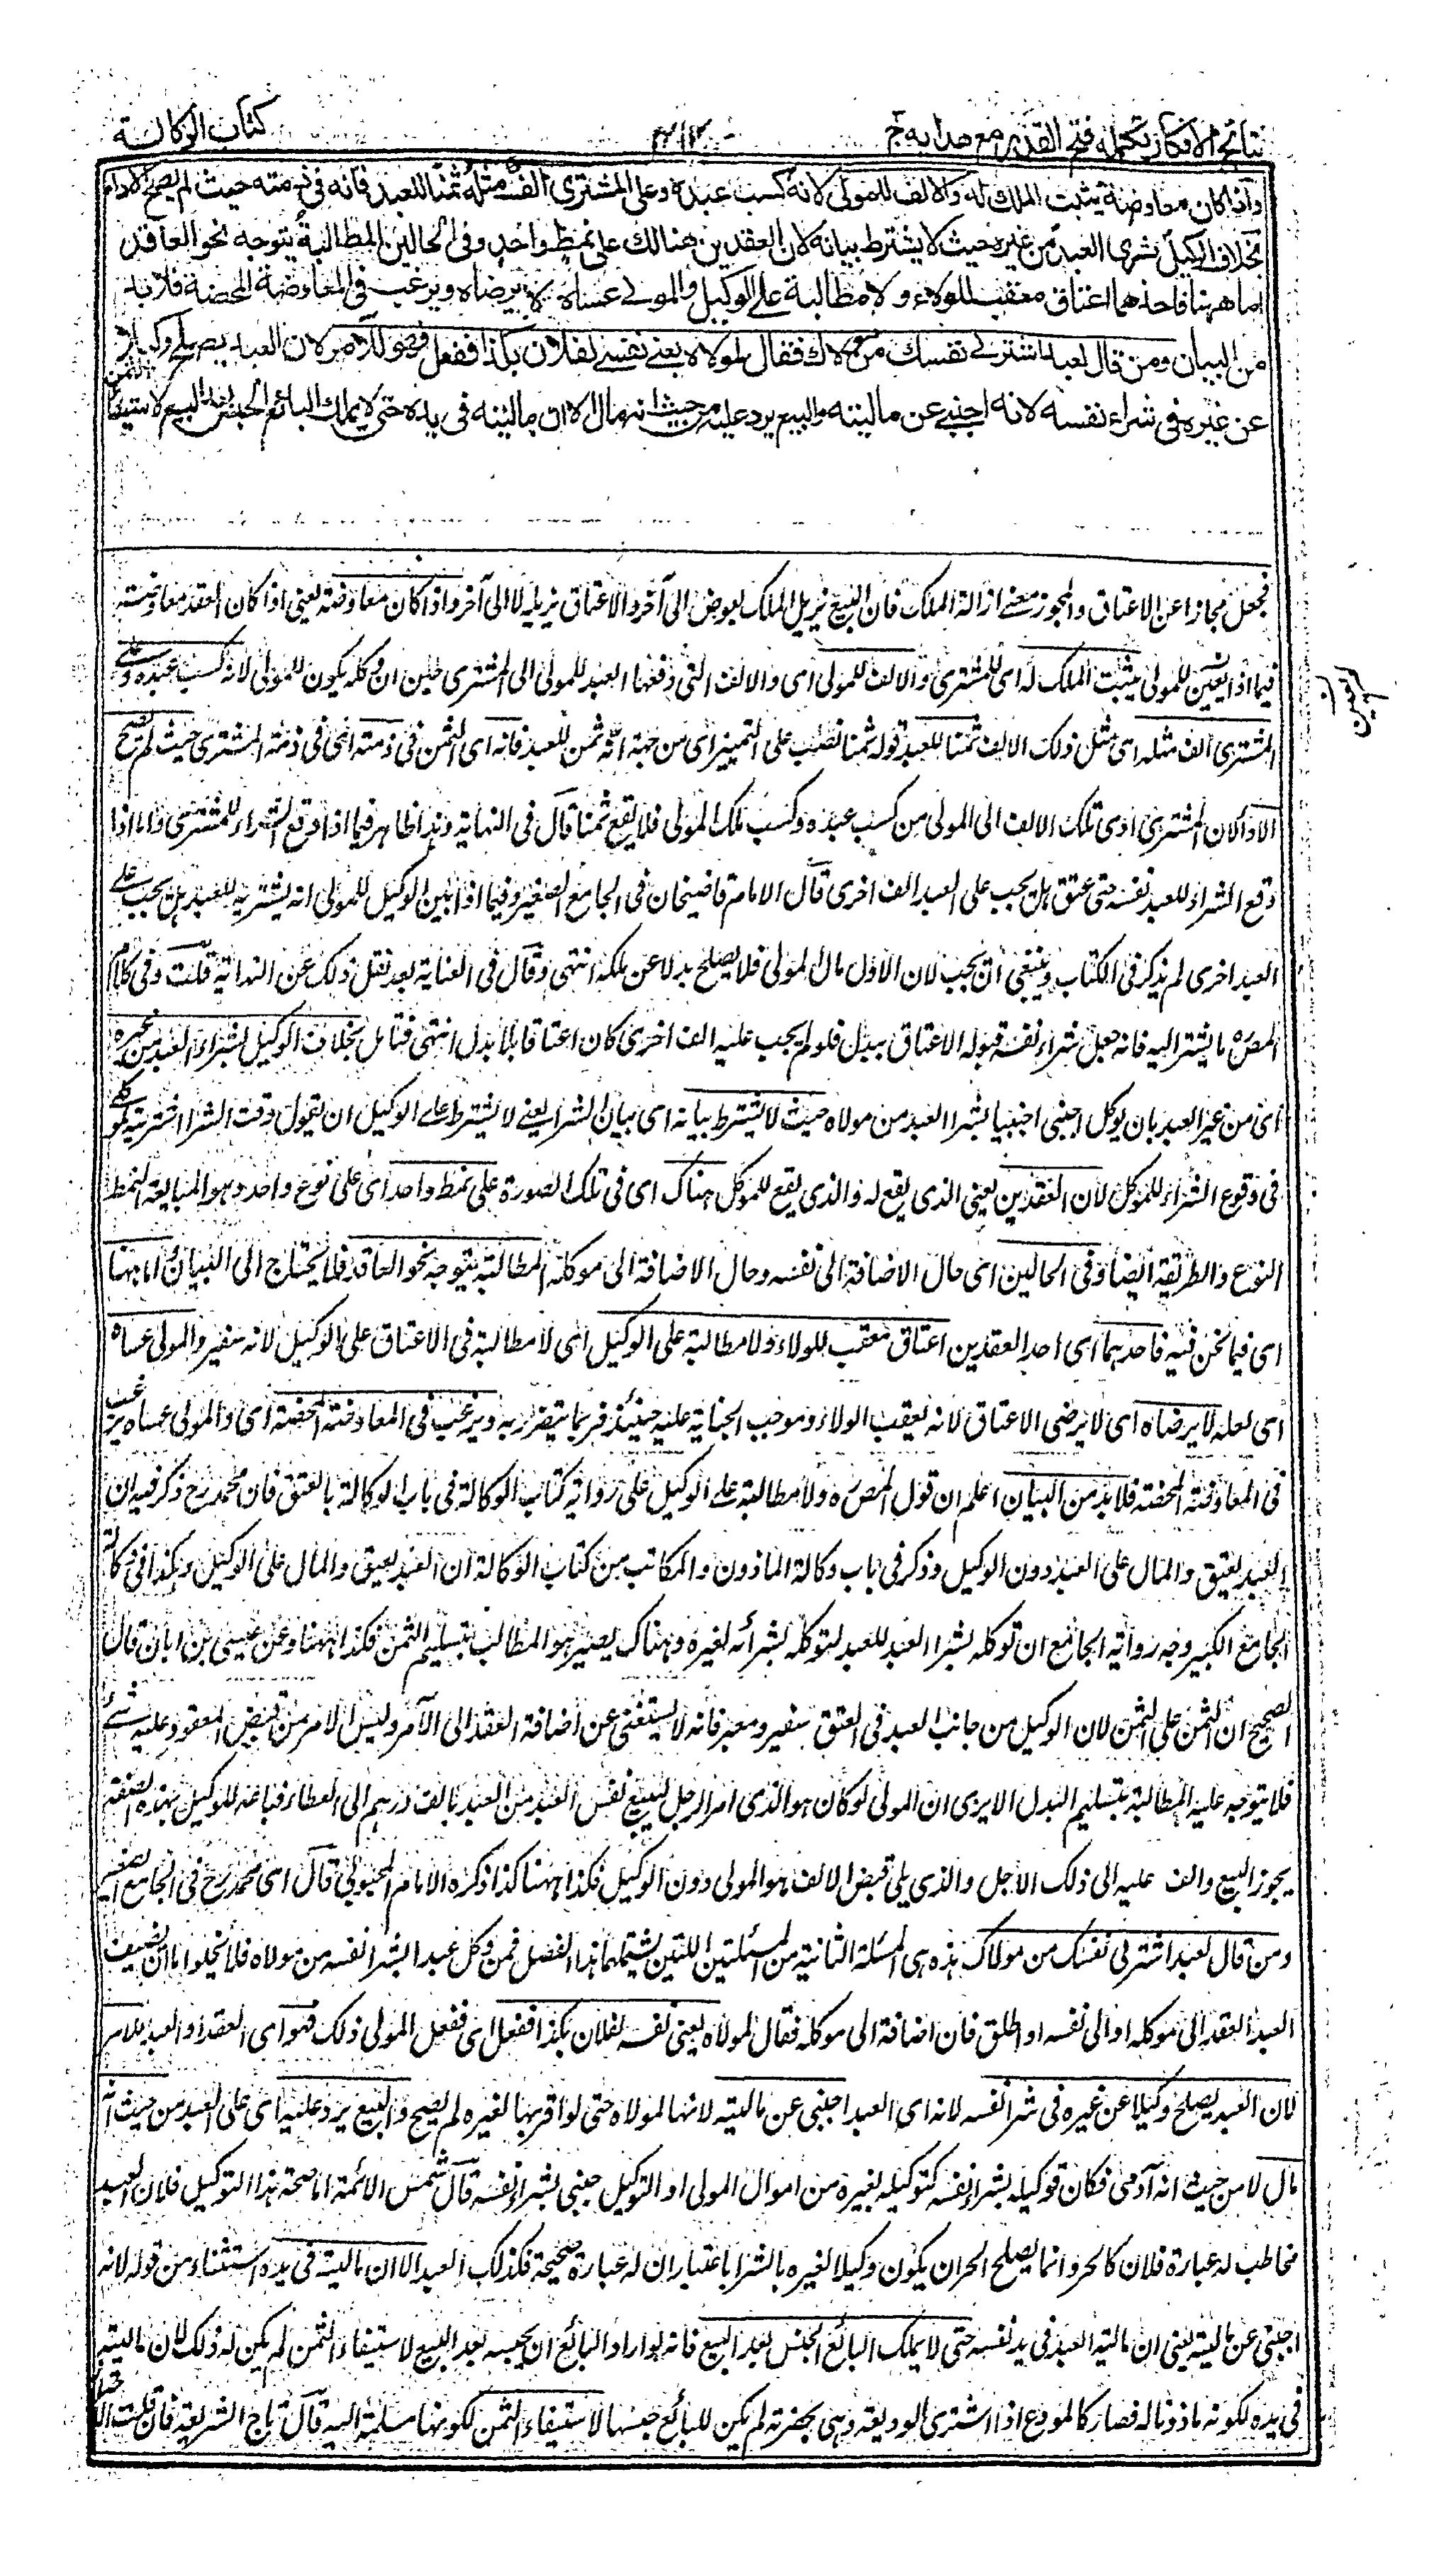 نتائج الافكار تكمله فتح القدير مع هدايه ج
كتاب الوكالة
واذا كان معاوضة يثبت الملك له والالف للمولى لانه كسب عبده وعلى المشترى الف مثله ثمنا للعبد فانه فى ذمته حيث لم يصح الاداء
بخلاف الوكيل بشرى العبد من غيره حيث لا يشترط بيانه لان العقدين هنالك على نمط واحد وفى الحالين المطالبة يتوجه نحو العاقد
اما ههنا فاحدهما اعتاق معقب للولاء ولا مطالبة على الوكيل والمولى عساه لا يرضاه ويرغب فى المعاوضة المحضة فلا بد
من البيان ومن قال لعبد اشتر لى نفسك من مولاك فقال لمولاه بعنى نفسى لفلان بكذا ففعل فهو للآمر لان العبد يصلح وكيلا
عن غيره فى شراء نفسه لانه اجنبى عن ماليته والبيع يرد عليه من حيث انه مال الا ان ماليته فى يده حتى لا يملك البائع الحبس بعد البيع لاستيفاء الثمن
فجعل مجازا عن الاعتاق والمجوز معنى ازالة الملك فان البيع يزيل الملك بعوض الى آخر والاعتاق يزيله لا الى آخر واذا كان معاوضة يعنى اذا كان العقد معاوضة
فيما اذا لم يعين للمولى يثبت الملك له اى للمشترى والالف للمولى اى والالف التى دفعها العبد للمولى الى المشترى حين ان وكله يكون للمولى لانه كسب عبده وعلى
المشترى الف مثله اى مثل ذلك الالف ثمنا للعبد قوله ثمنا نصب على التمييز اى من جهة انه ثمن للعبد فانه اى الثمن فى ذمته اى فى ذمة المشترى حيث لم يصح
الاداء لان المشترى ادى تلك الالف الى المولى من كسب عبده وكسب ملك المولى فلا يقع ثمنا قال فى النهاية وهذا ظاهر فيما اذا وقع الشراء للمشترى واما اذا
وقع الشراء للعبد نفسه حتى عتق هل يجب على العبد الف اخرى قال الامام قاضيخان فى الجامع الصغير وفيما اذا بين الوكيل للمولى انه يشتريه للعبد هل يجب على
العبد اخرى لم يذكر فى الكتاب وينبغى ان يجب لان الاول مال المولى فلا يصلح بدلا عن ملكه انتهى وقال فى العناية بعد نقل ذلك عن النهاية قلت وفى كلام
المصره ما يشير اليه فانه جعل شراء نفسه قبوله الاعتاق ببدل فلو لم يجب عليه الف اخرى كان اعتاقا بلا بدل انتهى فتامل بخلاف الوكيل لشراء العبد من غيره
اى من غير العبد بان يوكل اجنبى اجنبيا بشراء العبد من مولاه حيث لا يشترط بيانه اى بيان الشراء يعنى لا يشترط على الوكيل ان يقول وقت الشراء اشتريته لموكلى
فى وقوع الشراء للموكل لان العقدين يعنى الذى يقع له والذى يقع للموكل هناك اى فى تلك الصورة على نمط واحد اى على نوع واحد وهو المبايعة النمط
النوع والطريقة ايضا وفى الحالين اى حال الاضافة الى نفسه وحال الاضافة الى موكله المطالبة يتوجه نحو العاقد فلا يحتاج الى البيان اما ههنا
اى فيما نحن فيه فاحدهما اى احد العقدين اعتاق معقب للولاء ولا مطالبة على الوكيل اى لا مطالبة فى الاعتاق على الوكيل لانه سفير والمولى عساه
اى لعله لا يرضاه اى لا يرضى الاعتاق لانه يعقب الولاء وموجب الجناية عليه حينئذ فربما يتضرر به ويرغب فى المعاوضة المحضة اى والمولى عساه يرغب
فى المعاوضة المحضة فلا بد من البيان اعلم ان قول المصره ولا مطالبة على الوكيل على رواية كتاب الوكالة فى باب الوكالة بالعتق فان محمد رح ذكر فيه ان
العبد يعتق والمال على العبد دون الوكيل وذكر فى باب وكالة الماذون والمكاتب من كتاب الوكالة ان العبد يعتق والمال على الوكيل وهكذا فى وكالة
الجامع الكبير وجه رواية الجامع ان توكله بشراء العبد للعبد كتوكله بشرائه لغيره وهناك يصير هو المطالب بتسليم الثمن فكذا ههنا وعن عيسى بن ابان قال
الصحيح ان الثمن على لان الوكيل من جانب العبد فى العتق سفير ومعبر فانه لا يستغنى عن اضافة العقد الى الآمر وليس الامر من قبض المعقود عليه شئ
فلا يتوجه عليه المطالبة بتسليم البدل الا يرى ان المولى لو كان هو الذى امر الرجل لبيع نفس العبد من العبد بالف درهم الى العطاء فباعه للوكيل بهذه الصفة
يجوز البيع والف عليه الى ذلك الاجل والذى يلى قبض الالف هو المولى دون الوكيل فكذا ههنا كذا ذكره الامام المحبوبى قال اى محمد رح فى الجامع الصغير
ومن قال لعبد اشتر لى نفسك من مولاك هذه هى المسئلة الثانية من المسئلتين اللتين يشتملهما هذا الفصل فمن وكل عبدا بشراء نفسه من مولاه فلا يخلو اما ان يضيف
العبد العقد الى موكله او الى نفسه او اطلق فان اضافه الى موكله فقال لمولاه بعنى نفسى لفلان بكذا ففعل اى ففعل المولى ذلك فهو اى العقد او العبد للامر
لان العبد يصلح وكيلا عن غيره فى شراء نفسه لانه اى العبد اجنبى عن ماليته لانها لمولاه حتى لو اقر بها لغيره لم يصح والبيع يرد عليه اى على العبد من حيث انه
مال لا من حيث انه آدمى فكان توكيله بشراء نفسه كتوكيله بغيره من اموال المولى او التوكيل اجنبى بشراء نفسه قال شمس الائمة اما صحة هذا التوكيل فلان العبد
مخاطب له عبارة فلان كالحر وانما يصلح الحر ان يكون وكيلا لغيره بالشراء باعتبار ان له عبارة صحيحة فكذلك العبد الا ان ماليته فى يده استثناء من قوله لانه
اجنبى عن ماليته يعنى ان مالية العبد فى يد نفسه حتى لا يملك البائع الحبس بعد البيع فانه لو اراد البائع ان يحبسه بعد البيع لاستيفاء الثمن لم يكن له ذلك لان ماليته
فى يده لكونه ماذونا له فصار كالمودع اذا اشترى الوديعة وهى بحضرته لم يكن للبائع حبسها لاستيفاء الثمن لكونها مسلمة اليه قال تاج الشريعة فان قلت